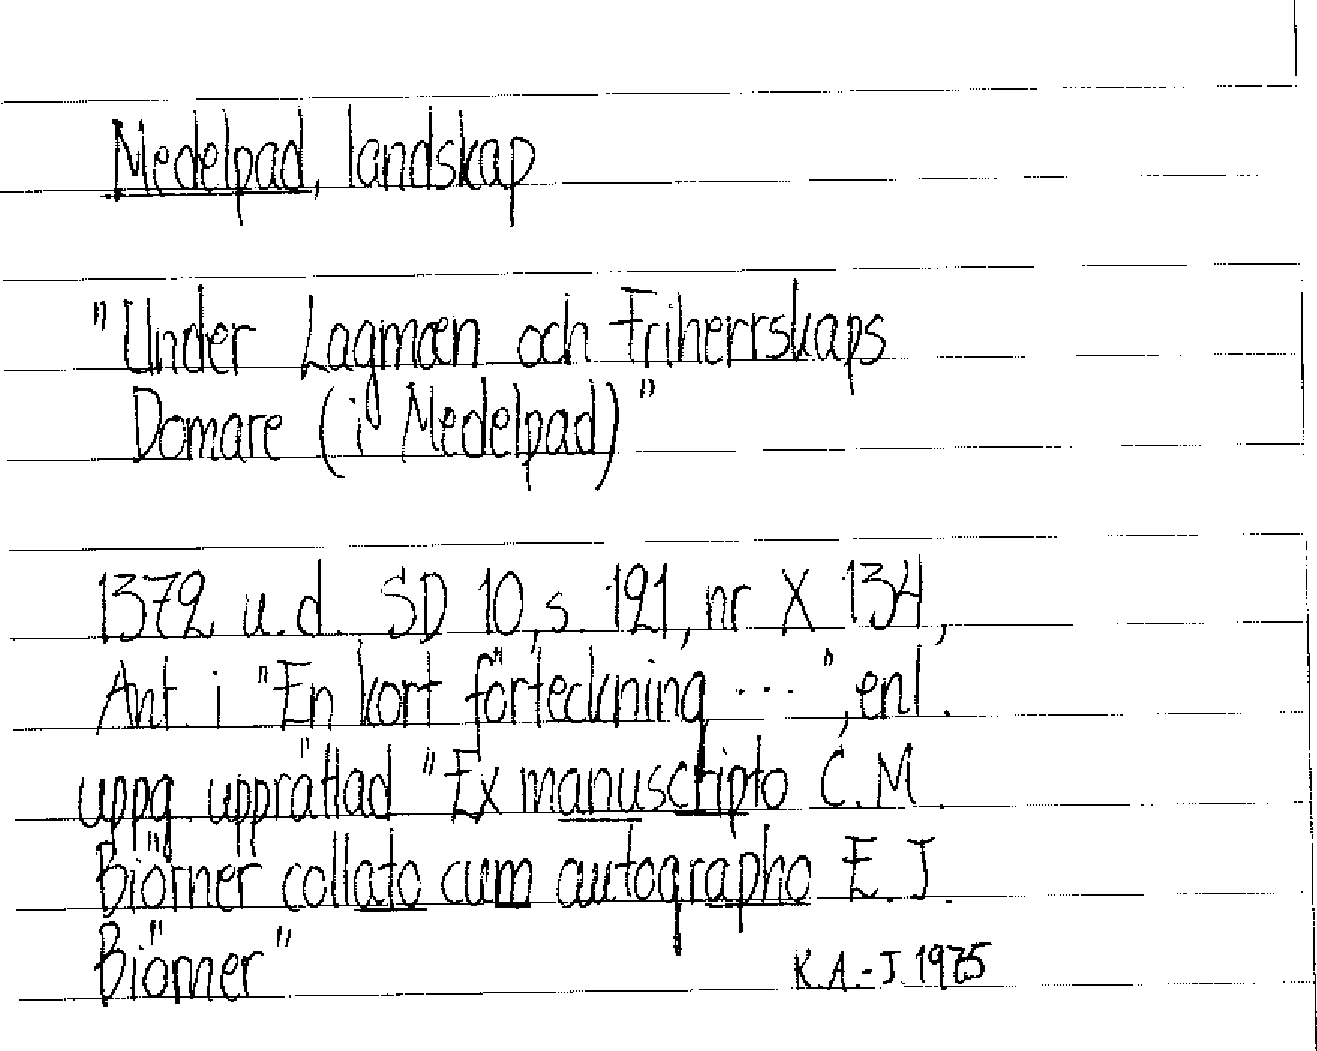 Medelpad, landskap
"Under Lagmæn och Friherrskaps
Domare (i Medelpad)"
1372 u.d. SD 10, s. 121, nr X 134,
Ant. i "En kort förteckning ...", enl.
uppg. upprättad "Ex manuscripto C.M.
Biörner collato cum autographo E.J.
Biörner"
K.A.-J. 1975